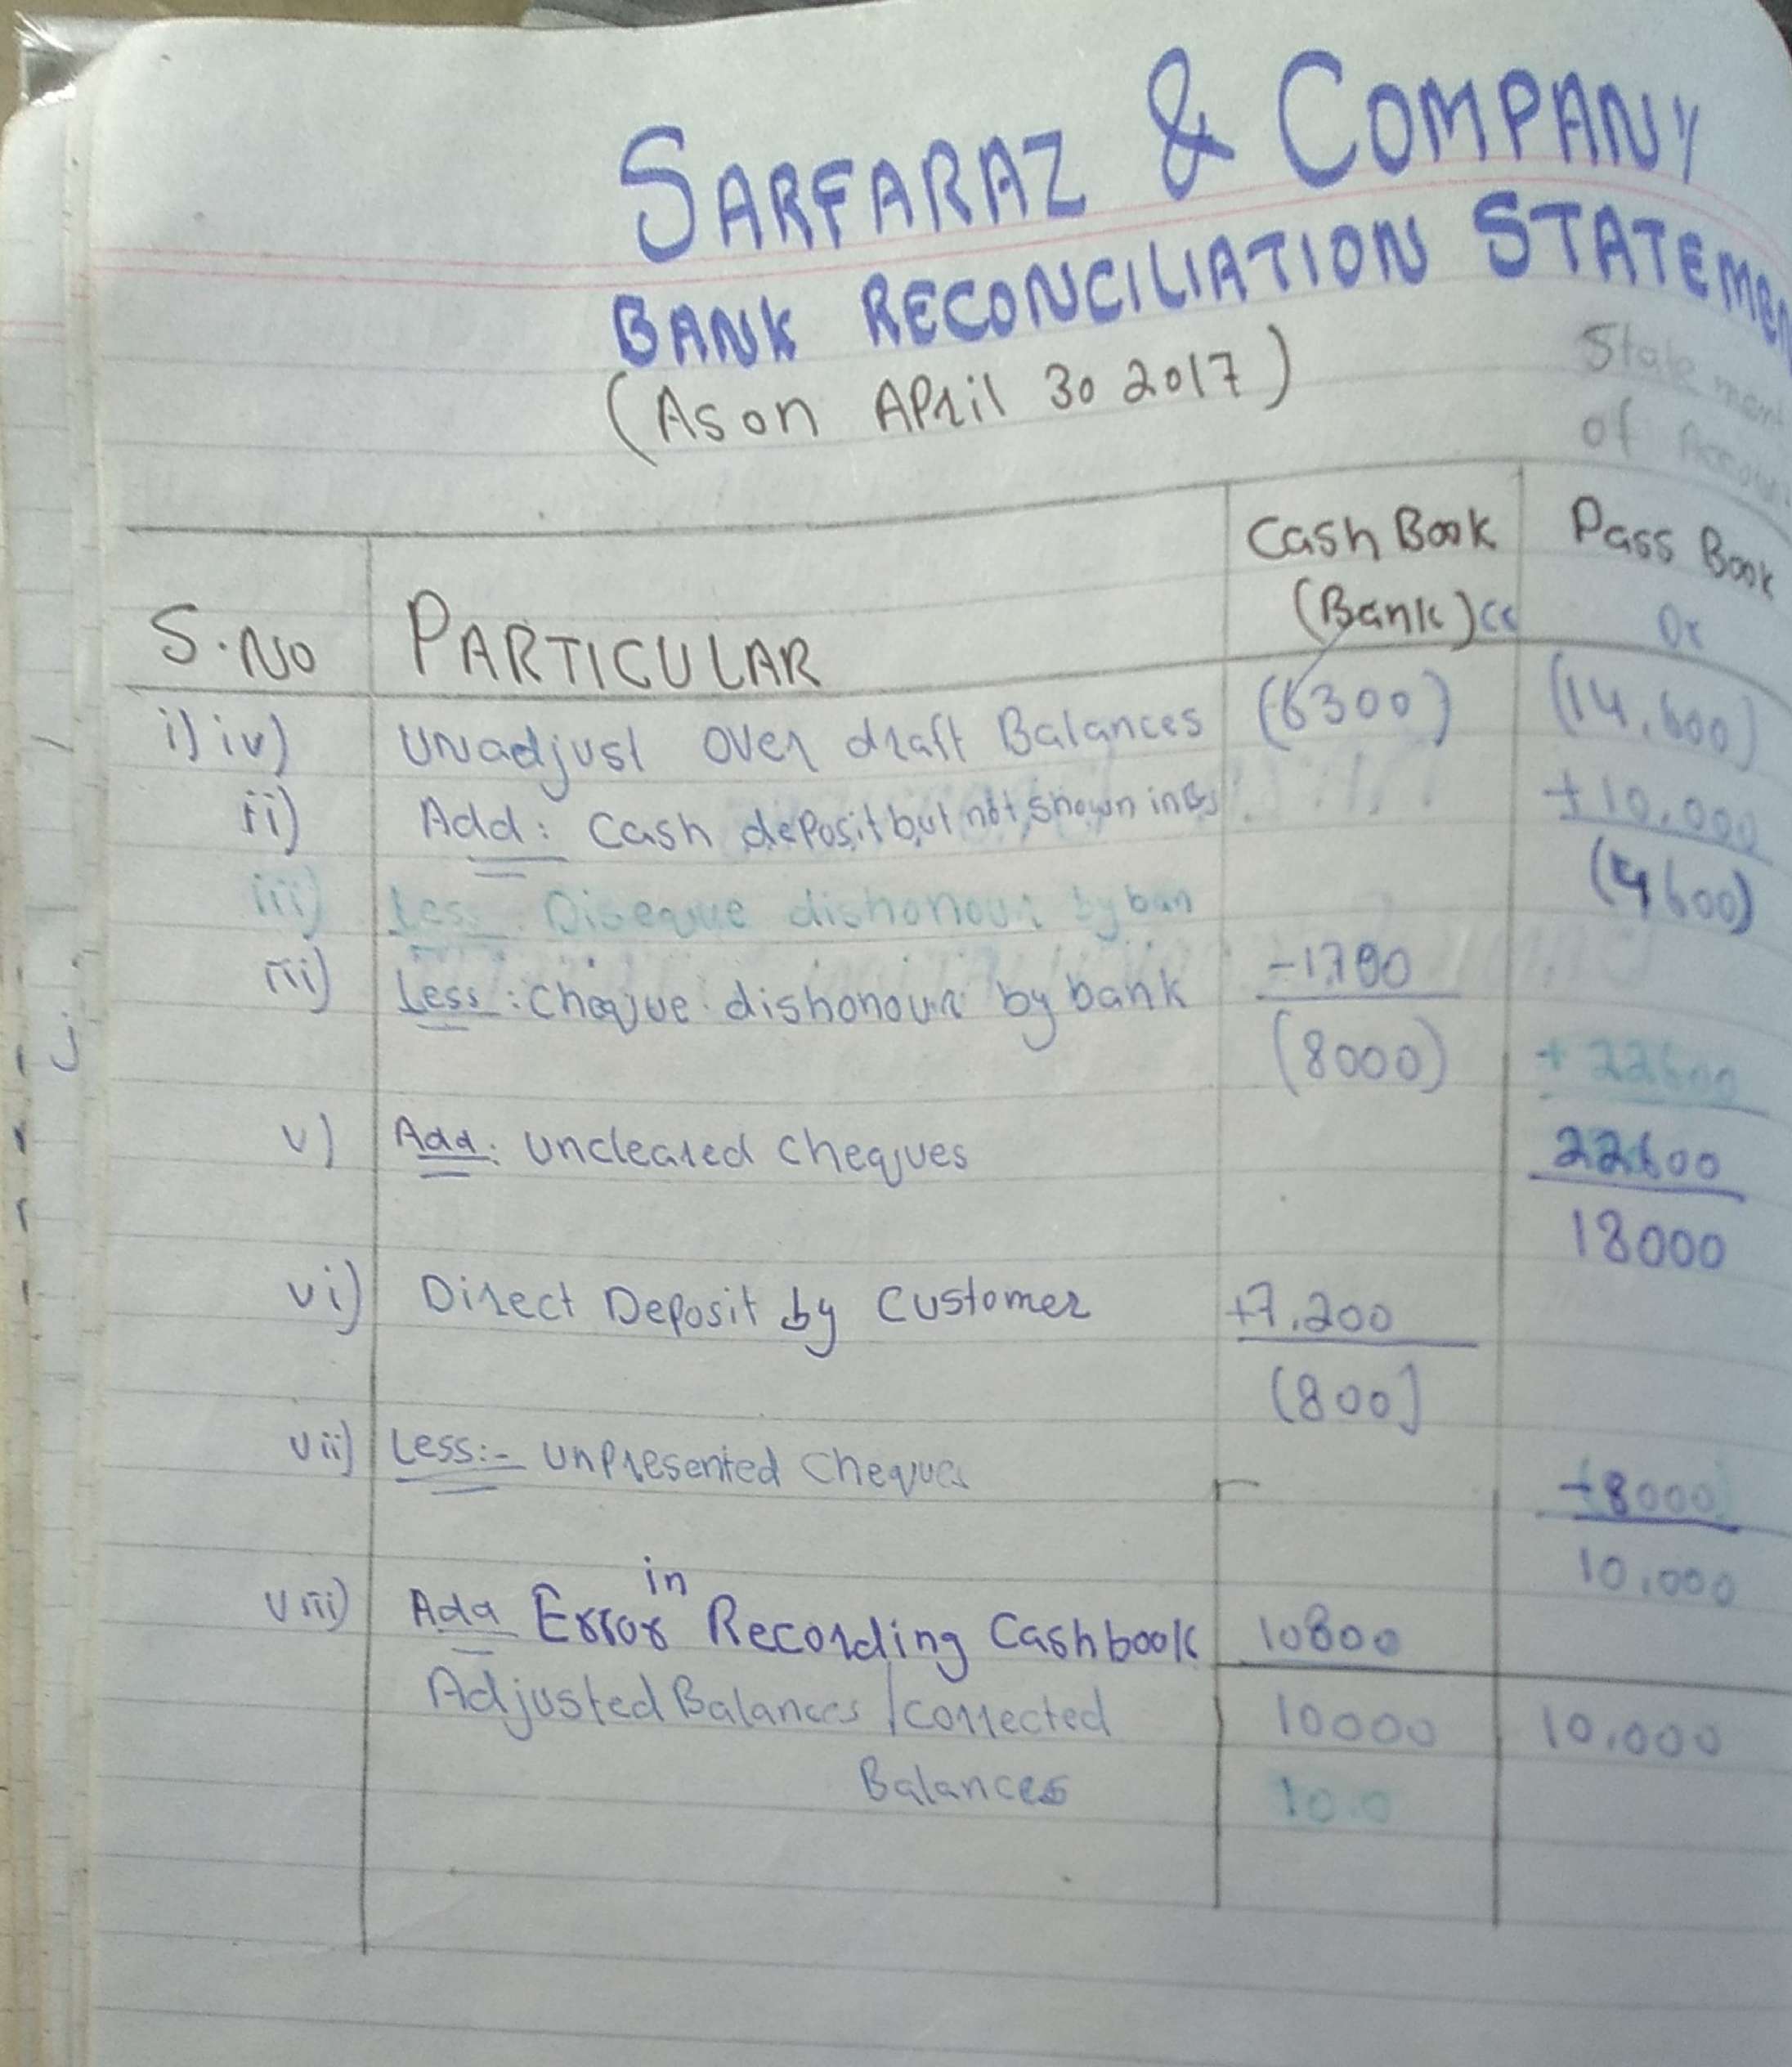 SARFARAZ & COMPANY
BANK RECONCILIATION STATEMEN
(As on APril 30 2017)
Statement
of Accoun
S.No PARTICULAR Cash Book (Bank) Pass Book Or
i) iv) Unadjust over draft Balances (6300) (14,600)
ii) Add: Cash dePosit but not shown in BS +10,000
(4600)
iii) Less: dishonour by ban
iii) Less: Cheque dishonour by bank -1700
(8000) + 22600
v) Add: Uncleared Cheques 22600
18000
vi) Direct Deposit by Customer +7,200
(800)
vii) Less:- UnPresented Cheques -8000
10,000
viii) Add Error in Recording Cashbook 10800
Adjusted Balances / corrected 10000 10,000
Balances 10.0